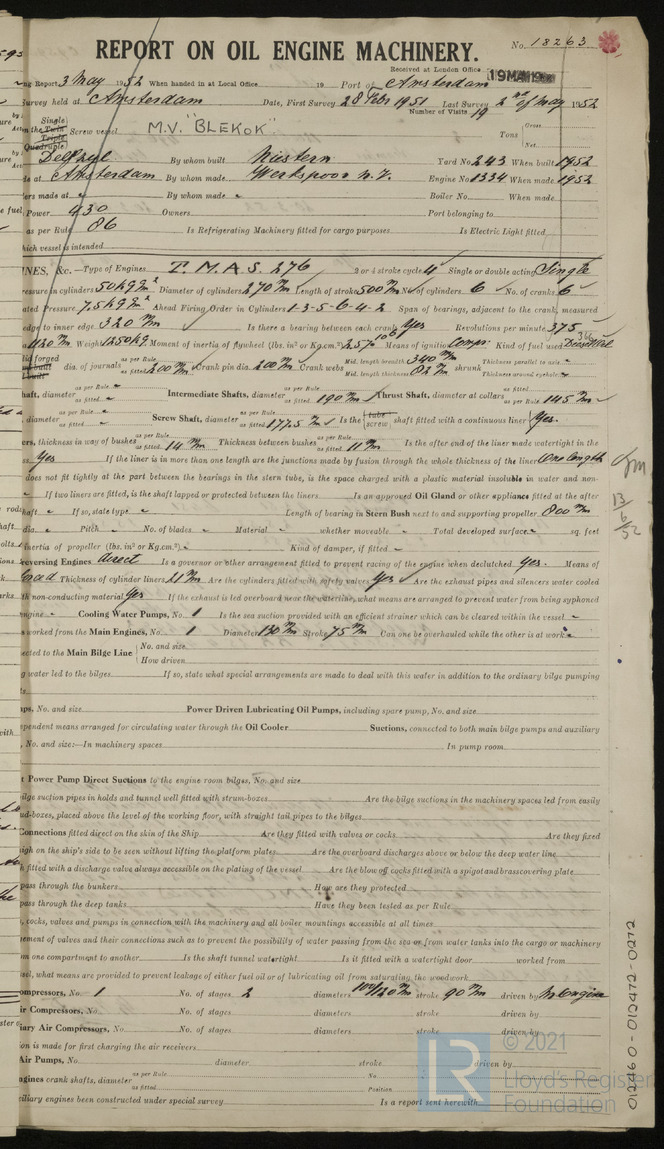 REPORT ON OIL ENGINE MACHINERY.
No. 18263
Received at London Office 19 MAY 1952
Report 3 May 1952 When handed in at Local Office 19 Port of Amsterdam
Survey held at Amsterdam Date, First Survey 28 Febr 1951 Last Survey 2nd of May 1952
Number of Visits 19
Single
on the Twin Screw vessel M.V. "BLEKOK" Tons Gross
Triple
Quadruple Net
Delfzyl By whom built Yard No 243 When built 1952
at Amsterdam By whom made Werkspoor N.V. Engine No 1334 When made 1952
made at By whom made Boiler No. When made
Power 430 Owners Port belonging to
as per Rule 86 Is Refrigerating Machinery fitted for cargo purposes Is Electric Light fitted
which vessel is intended
&c.—Type of Engines T.M.A.S. 276 2 or 4 stroke cycle 4 Single or double acting Single
in cylinders 50 kg/m² Diameter of cylinders 270 m/m Length of stroke 500 m/m No. of cylinders 6 No. of cranks 6
Pressure 7,5 kg/m² Ahead Firing Order in Cylinders 1-3-5-6-4-2 Span of bearings, adjacent to the crank, measured
edge to inner edge 320 m/m Is there a bearing between each crank Yes Revolutions per minute 375
1120 m/m Weight 1250 kg Moment of inertia of flywheel (lbs. in² or Kg.cm.²) Means of ignition Compr. Kind of fuel used
dia. of journals as per Rule as fitted 200 m/m Crank pin dia. 200 m/m Crank webs Mid. length breadth 340 m/m Mid. length thickness 82 m/m shrunk Thickness parallel to axis Thickness around eyehole
diameter as per Rule as fitted Intermediate Shafts, diameter as per Rule as fitted 190 m/m Thrust Shaft, diameter at collars as fitted 145 m/m
diameter as per Rule as fitted Screw Shaft, diameter as per Rule as fitted 177.5 m/m Is the tube screw shaft fitted with a continuous liner Yes.
thickness in way of bushes as per Rule as fitted 14 m/m Thickness between bushes as per Rule as fitted 11 m/m Is the after end of the liner made watertight in the
Yes If the liner is in more than one length are the junctions made by fusion through the whole thickness of the liner One length
does not fit tightly at the part between the bearings in the stern tube, is the space charged with a plastic material insoluble in water and non-
If two liners are fitted, is the shaft lapped or protected between the liners Is an approved Oil Gland or other appliance fitted at the after
If so, state type Length of bearing in Stern Bush next to and supporting propeller 800 m/m
dia. Pitch No. of blades Material whether moveable Total developed surface sq. feet
inertia of propeller (lbs. in² or Kg.cm.²) Kind of damper, if fitted
reversing Engines direct Is a governor or other arrangement fitted to prevent racing of the engine when declutched Yes. Means of
forced Thickness of cylinder liners 21 m/m Are the cylinders fitted with safety valves Yes Are the exhaust pipes and silencers water cooled
with non-conducting material Yes If the exhaust is led overboard near the waterline, what means are arranged to prevent water from being syphoned
engine Cooling Water Pumps, No. 1 Is the sea suction provided with an efficient strainer which can be cleared within the vessel
worked from the Main Engines, No. 1 Diameter 130 m/m Stroke 75 m/m Can one be overhauled while the other is at work
connected to the Main Bilge Line No. and size
How driven
water led to the bilges If so, state what special arrangements are made to deal with this water in addition to the ordinary bilge pumping
No. and size Power Driven Lubricating Oil Pumps, including spare pump, No. and size
means arranged for circulating water through the Oil Cooler Suctions, connected to both main bilge pumps and auxiliary
No. and size:—In machinery spaces In pump room
Power Pump Direct Suctions to the engine room bilges, No. and size
bilge suction pipes in holds and tunnel well fitted with strum-boxes Are the bilge suctions in the machinery spaces led from easily
mud-boxes, placed above the level of the working floor, with straight tail pipes to the bilges
Connections fitted direct on the skin of the Ship Are they fitted with valves or cocks Are they fixed
high on the ship's side to be seen without lifting the platform plates Are the overboard discharges above or below the deep water line
fitted with a discharge valve always accessible on the plating of the vessel Are the blow off cocks fitted with a spigot and brass covering plate
pass through the bunkers How are they protected
pass through the deep tanks Have they been tested as per Rule
cocks, valves and pumps in connection with the machinery and all boiler mountings accessible at all times
of valves and their connections such as to prevent the possibility of water passing from the sea or from water tanks into the cargo or machinery
one compartment to another Is the shaft tunnel watertight Is it fitted with a watertight door worked from
what means are provided to prevent leakage of either fuel oil or of lubricating oil from saturating the woodwork
Compressors, No. 1 No. of stages 2 diameters 100/120 m/m stroke 90 m/m driven by M. engine
Air Compressors, No. No. of stages diameters stroke driven by
Air Compressors, No. No. of stages diameters stroke driven by
is made for first charging the air receivers
Air Pumps, No. diameter stroke driven by
crank shafts, diameter as per Rule as fitted No. Position
engines been constructed under special survey Is a report sent herewith
13/6/52
012460-012472-0272
LR © 2021
Lloyd's Register
Foundation